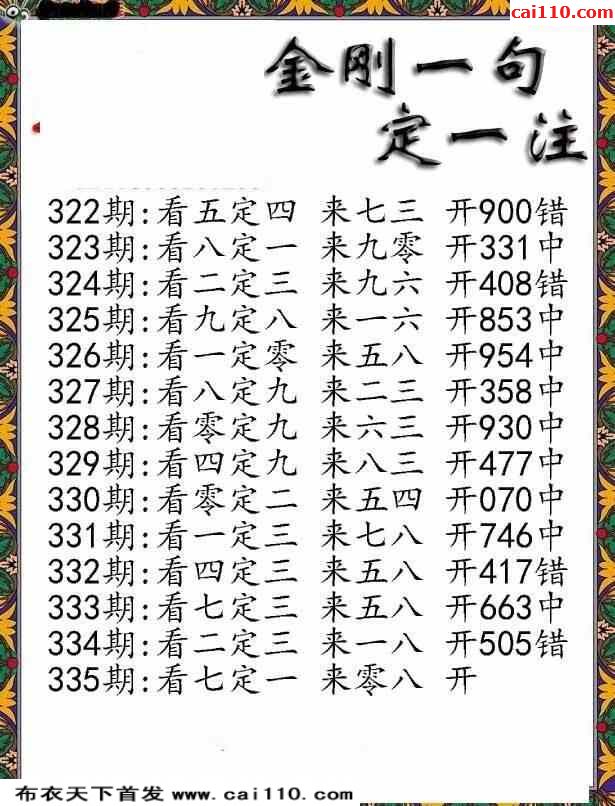 cai110.com
金刚一句
定一注
322期:看五定四 来七三 开900错
323期:看八定一 来九零 开331中
324期:看二定三 来九六 开408错
325期:看九定八 来一六 开853中
326期:看一定零 来五八 开954中
327期:看八定九 来二三 开358中
328期:看零定九 来六三 开930中
329期:看四定九 来八三 开477中
330期:看零定二 来五四 开070中
331期:看一定三 来七八 开746中
332期:看四定三 来五八 开417错
333期:看七定三 来五八 开663中
334期:看二定三 来一八 开505错
335期:看七定一 来零八 开
布衣天下首发 www.cai110.com